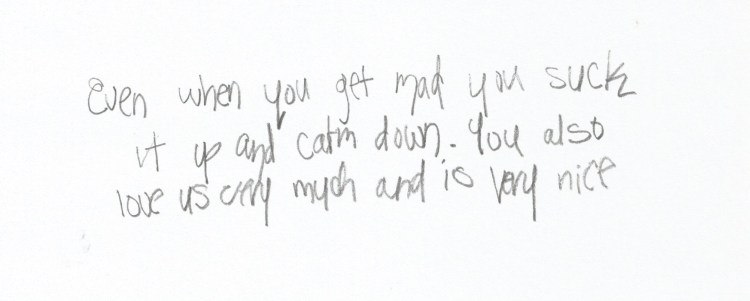 Even when you get mad you suck
it up and calm down. You also
love us very much and is very nice